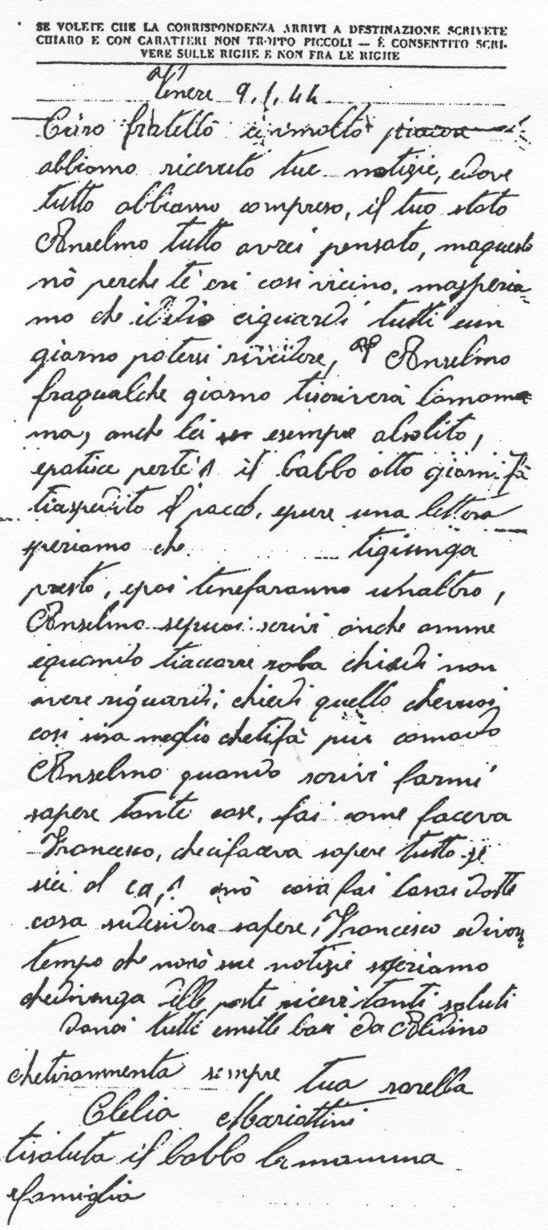 SE VOLETE CHE LA CORRISPONDENZA ARRIVI A DESTINAZIONE SCRIVETE
CHIARO E CON CARATTERI NON TROPPO PICCOLI — È CONSENTITO SCRI-
VERE SULLE RIGHE E NON FRA LE RIGHE
9.1.44
Caro fratello
abbiamo ricevuto tue notizie, edove
tutto abbiamo compreso, il tuo stato
Anselmo tutto avrei pensato, maquesto
nò perche te eri cosi vicino, masperia-
mo che iddio ciguardi tutti eun
giorno potersi rivedere, Anselmo
fraqualche giorno tiscriverà lamam
ma, anche lei esempre alsolito,
epatisce perte il babbo otto giorni fà
tiaspedito il pacco, epure una lettera
speriamo che tigiunga
presto, epoi tenefaranno unaltro,
Anselmo sepuoi scrivi anche amme
equando tiaccorre roba chiedi non
avere riguardi, chiedi quello chevuoi
cosi sisa meglio chetifà più comodo
Anselmo quando scrivi farmi
sapere tante cose, fai come faceva
Francesco, checifaceva sapere tutto se
sei al cosa fai
cosa sidesidera sapere, Francesco
tempo che nonò sue notizie speriamo
chedivenga ricevi tanti saluti
danoi tutti emille baci da
chetirammenta sempre tua sorella
Clelia Mariottini
tisaluta il babbo lamamma
efamiglia